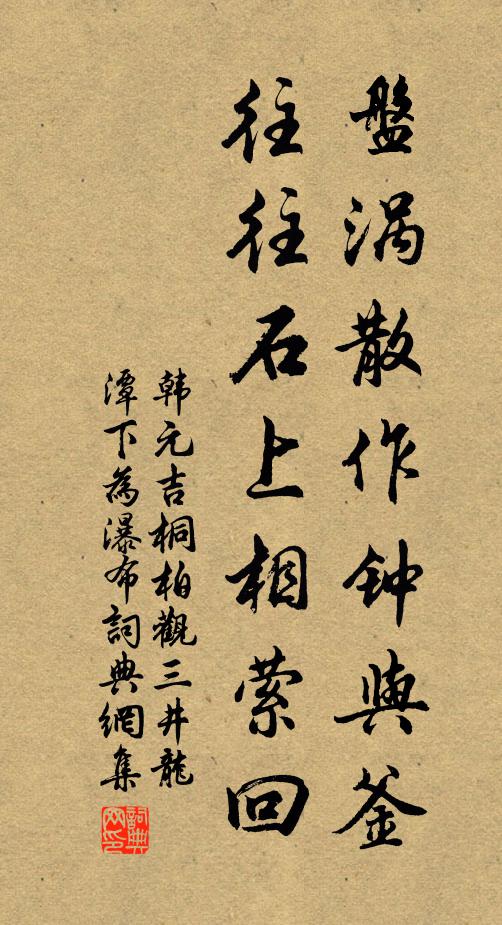 盤涡散作钟與釜
往往石上相萦回
韩元吉桐柏觀三井龍
潭下為瀑布詞典網集
詞典網印